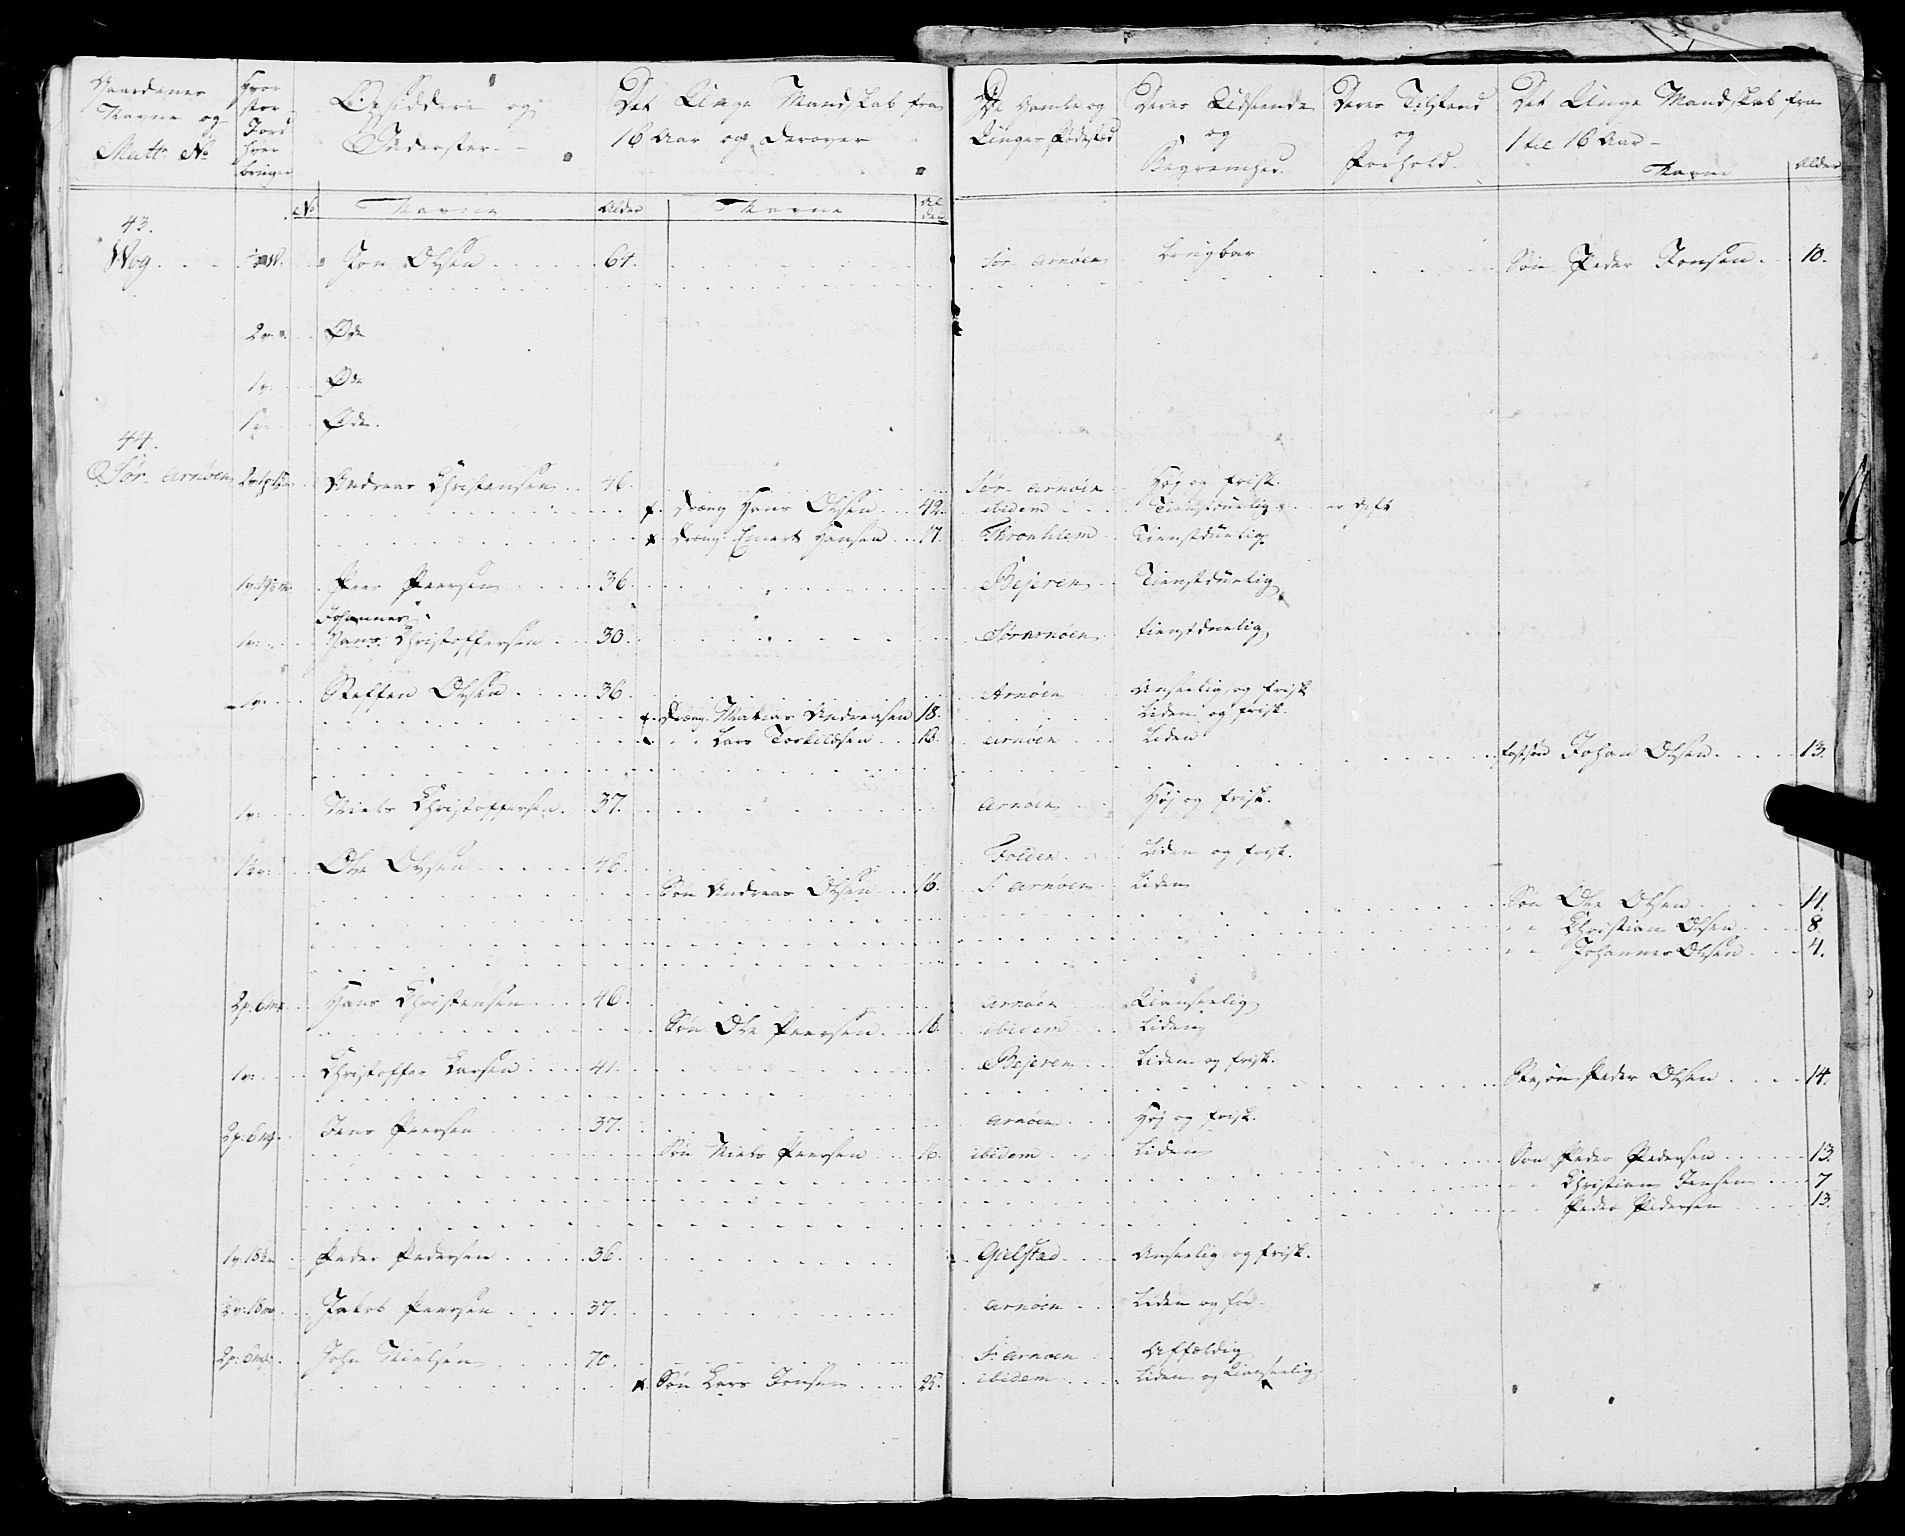 Gaardenes Navne og Matr: No
Hvor stor Jord hver bruger
Besiddere og Inderster
Det Unge Mandskab fra 16 Aar og derover
De Gamle og Unges Fødested
Deres Udseende og Beqvemhed
Deres Tilstand og Forhold
Det Unge Mandskab fra 1 til 16 Aar
Navne Alder
No Navne Alder Navne Alder
43.
Wog Jon Olsen 64. Sør arnøen Søn Peder Jonsen 10.
2 v. Øde
1 v. Øde
1 v. Øde.
44.
Sør arnøen Andreas Christensen 46. Sør arnøen Høj og frisk.
Dreng Hans Olsen 42. ibidem Tienstduelig er gift
Dreng Einert Hansen 17. Thronhiem Tienstduelig
Peer Peersen 36. Bejeren Tienstduelig
Johannes
1 v. Hans Christoffersen 30. Sørarnøen tienstduelig
1 v. Steffen Olsen 36. Arnøen Anseelig og frisk
Dreng Matias Andreasen 18. Liden og frisk.
Lars Torkildsen 18. arnøen Liden
Johan Olsen 13.
1 v. Niels Christoffersen 37. arnøen Høj og frisk.
Ole Olsen 46. Folden Liden og frisk.
Søn Andreas Olsen 16. S. arnøen Liden
Søn Ole Olsen 11.
Christian Olsen 8.
Johannes Olsen 4.
2 p: 6 mk Hans Christensen 46. arnøen Uanseelig
Søn Ole Peersen 16. ibidem Liden
1 v. Christoffer Larsen 41. Bejeren Liden og frisk.
Stesøn Peder Olsen 14.
2 p: 6 mk Jens Peersen 37. arnøen Høj og frisk.
Søn Niels Peersen 16. ibidem Liden
Søn Peder Pedersen 13.
Christian Jensen 7
Peder Pedersen 13.
Peder Pedersen 36. Gielstad Anseelig og frisk.
Jakob Peersen 37. arnøen Liden og før.
2 p: 6 mk John Nielsen 70. S: arnøen Affældig
Søn Lars Jonsen 25. ibidem Liden og Uanseelig